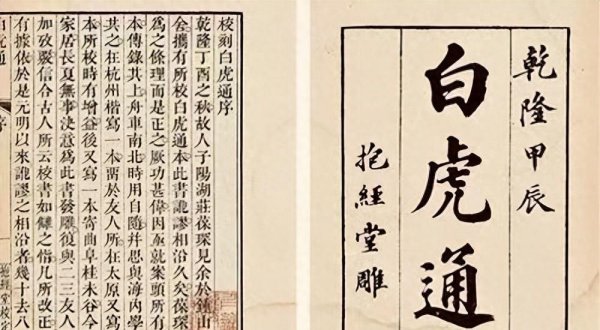 乾隆甲辰
白虎通
抱經堂雕
校刻白虎通序
乾隆丁酉之秋故人子陽湖莊葆琛見余於鍾山
舍攜有所校白虎通本此書譌謬相沿久矣葆琛
爲之條理而是正之厥功甚偉因亟就案頭所有
本傳錄其上舟車南北時用自隨并思與海內學
共之在杭州楷寫一本留於友人所在太原又寫
本所校時有增益後又寫一本寄曲阜桂未谷今
家居長夏無事決意爲此書發雕復與二三友人
加攷覈信合古人所云校書如讎之恉凡所改正
有據依於是元明以來譌謬之相沿者幾十去八
虎通
序
抱經堂校